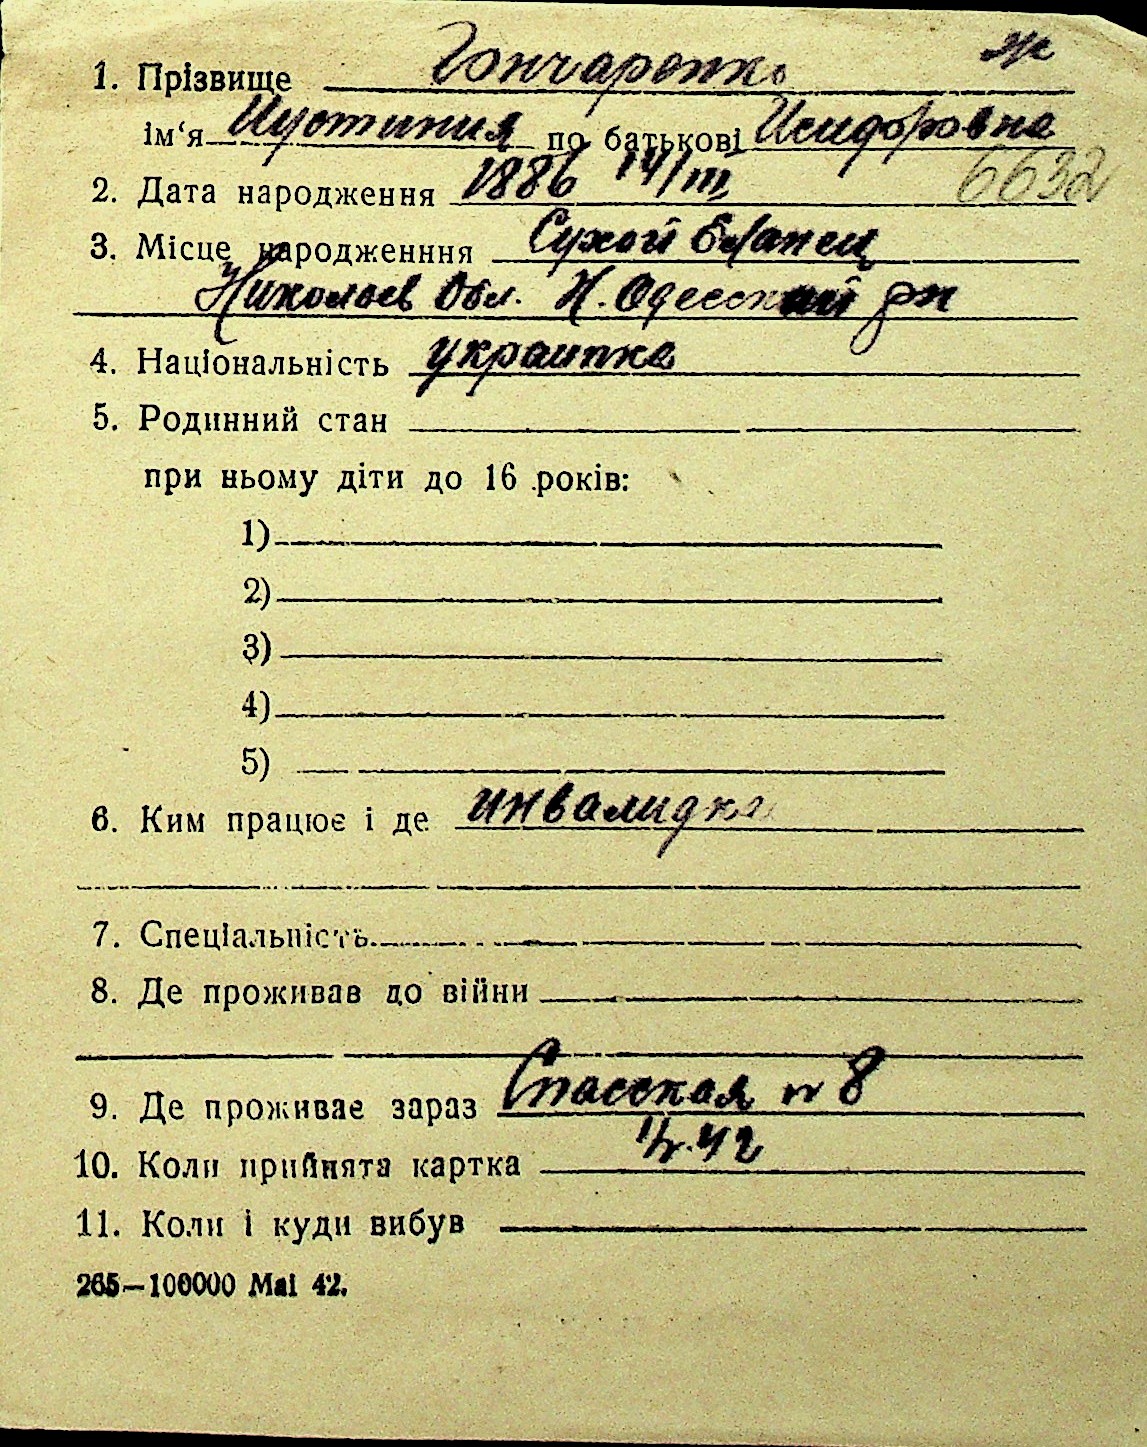 1. Прізвище Гончаренко ж
ім‘я Иустиния по батькові Исидоровна
2. Дата народження 1886 14/III 6632
3. Місце народженння Сухой Еланец
Николаев Обл. Н. Одесский рн
4. Національність украинка
5. Родинний стан
при ньому діти до 16 років:
1)
2)
3)
4)
5)
6. Ким працює і де инвалидка
7. Спеціальність
8. Де проживав до війни
9. Де проживає зараз Спасская № 8
10. Коли прийнята картка
11. Коли і куди вибув
265—100000 Маі 42.